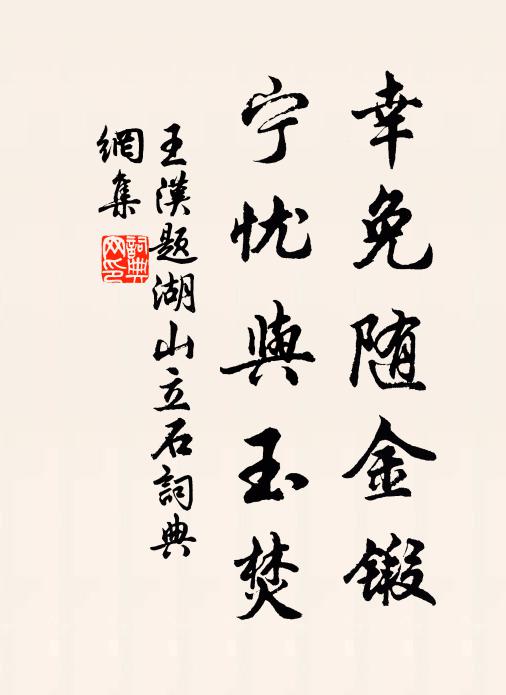 幸免随金鍛
宁忧與玉焚
王漢题湖山立石詞典
網集
詞典
网印